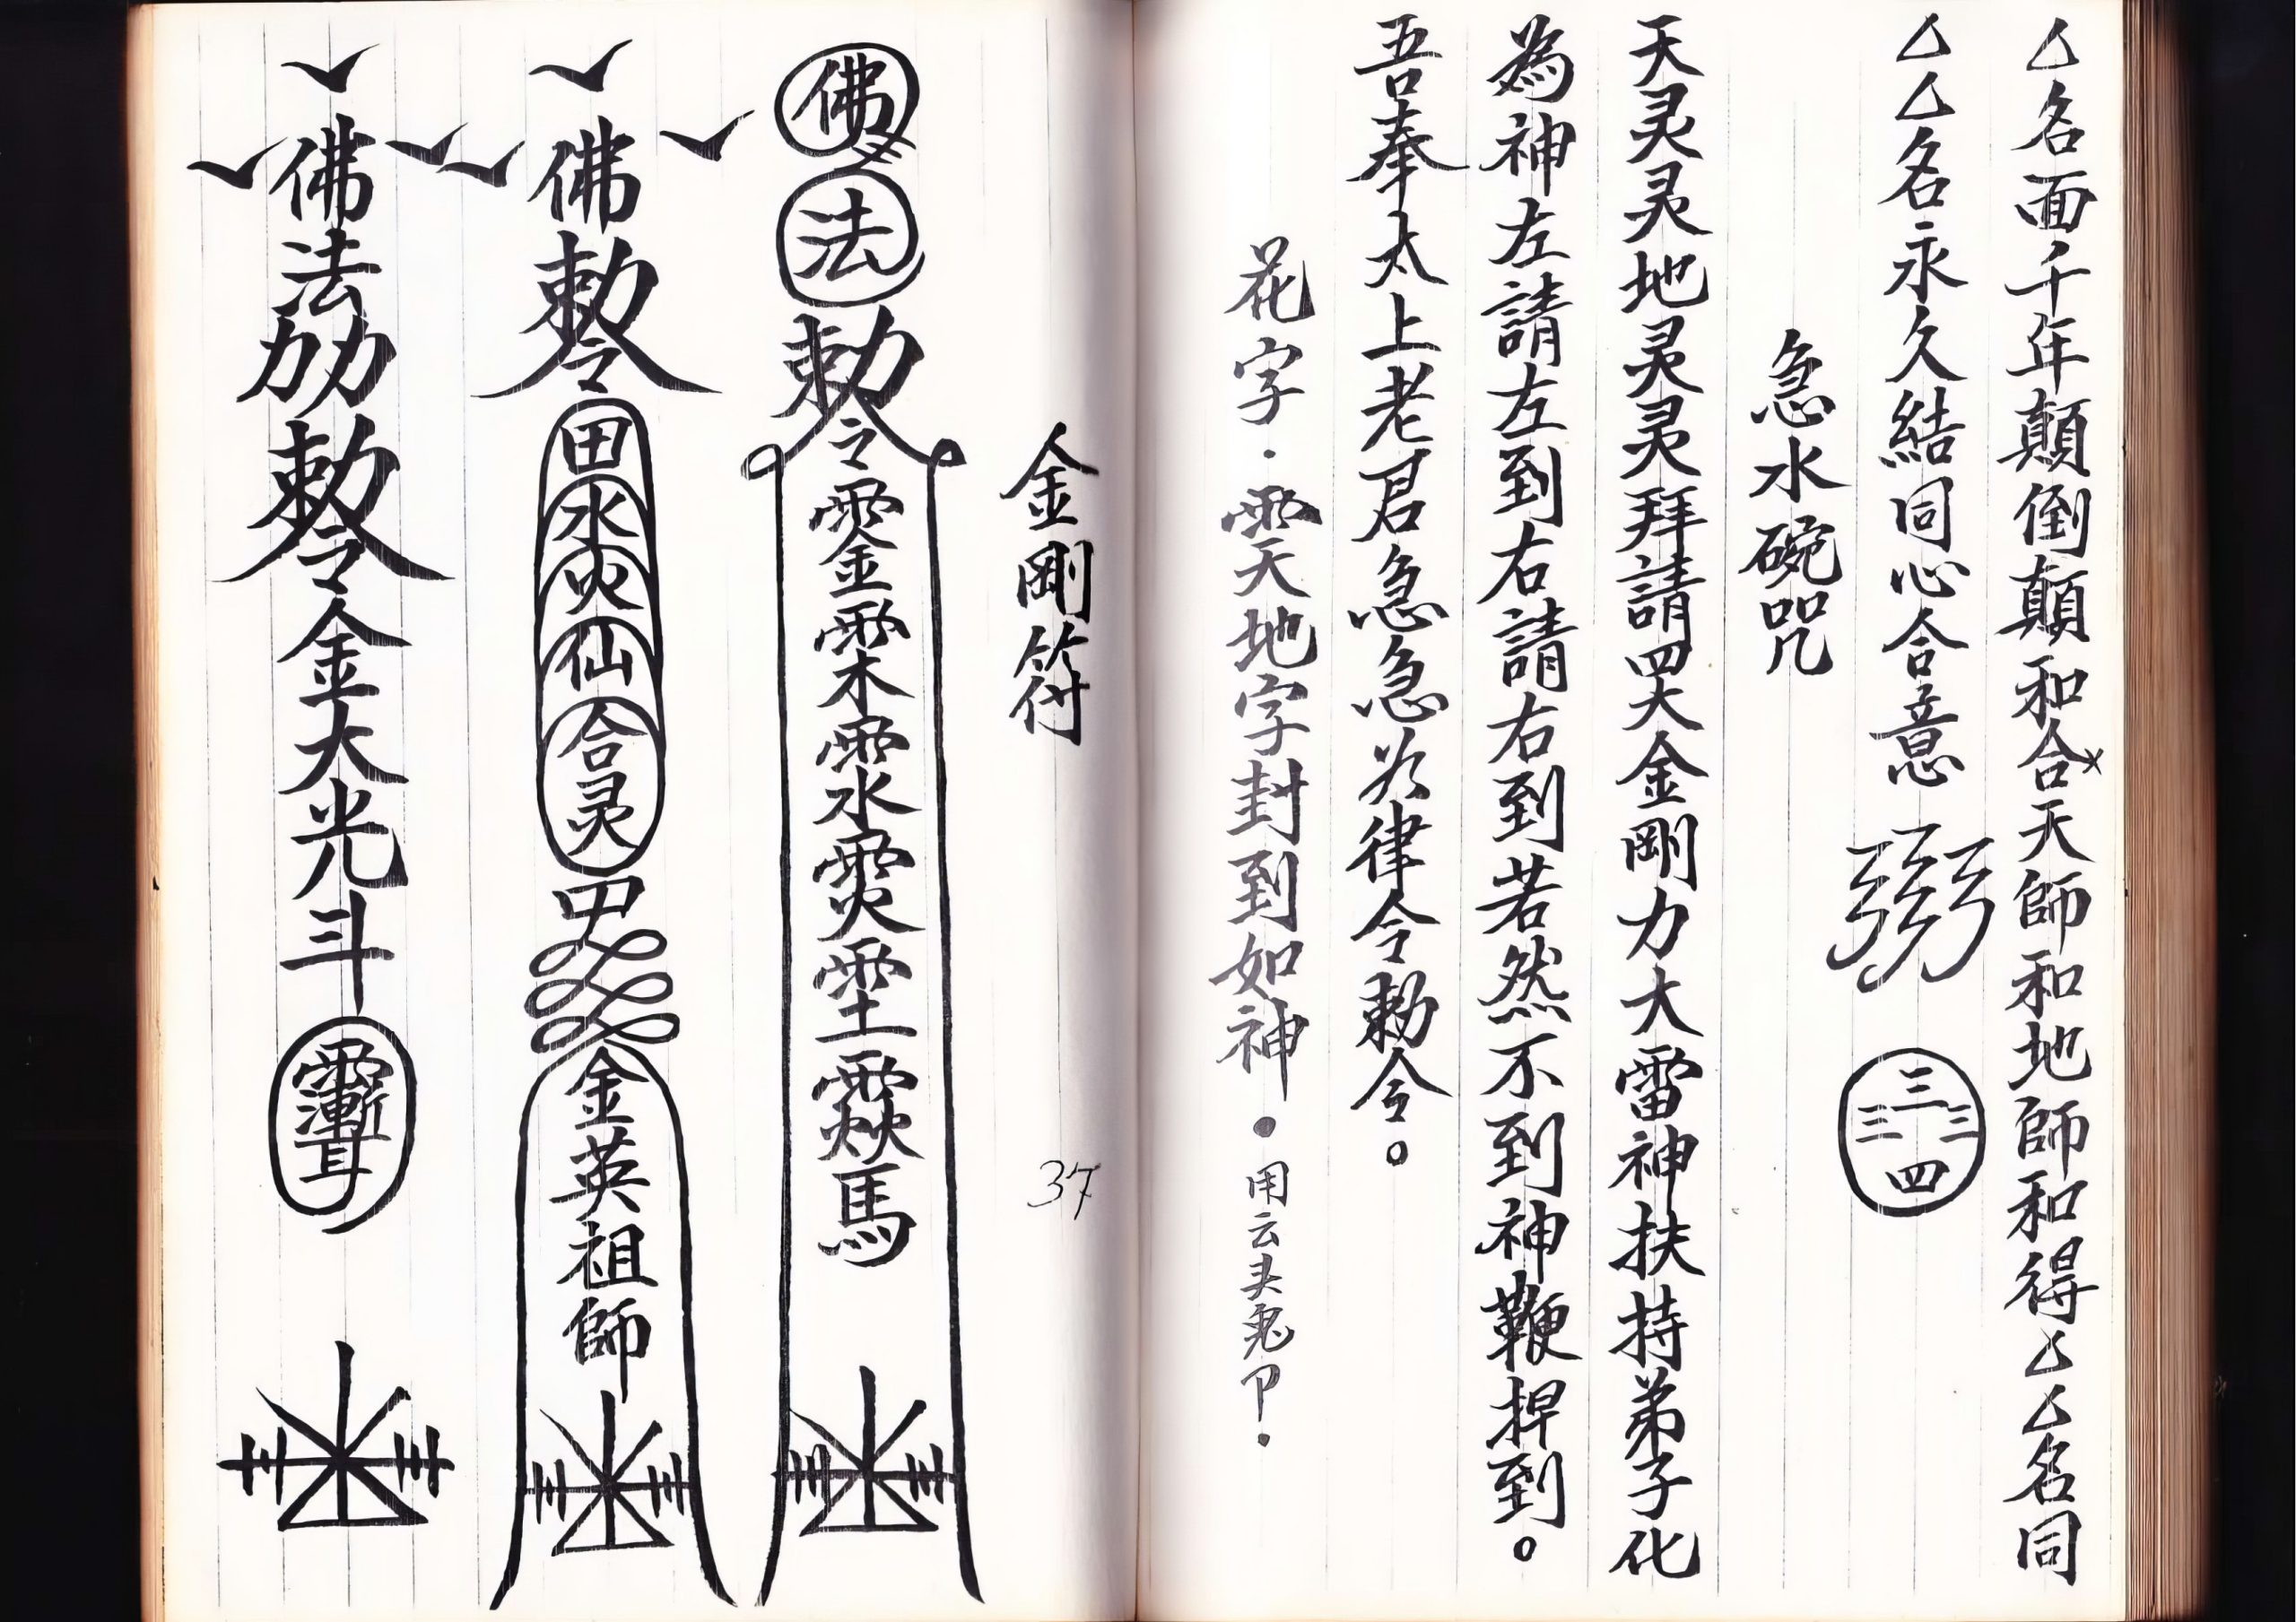 厶名面千年顛倒顛和合天師和地師和得厶厶名同
厶厶名永久結同心合意
三三三四
急水碗咒
天灵灵地灵灵拜請四大金剛力大雷神扶持弟子化
為神左請左到右請右到若然不到神鞭捍到。
吾奉太上老君急急如律令勅令。
花字．䨺天地字封到如神．用云头鬼卩．
金剛符
37
佛法勅令
金木水火土
馬
佛勅令田水火仙合灵甲金英祖師
佛法力力勅令金大光斗